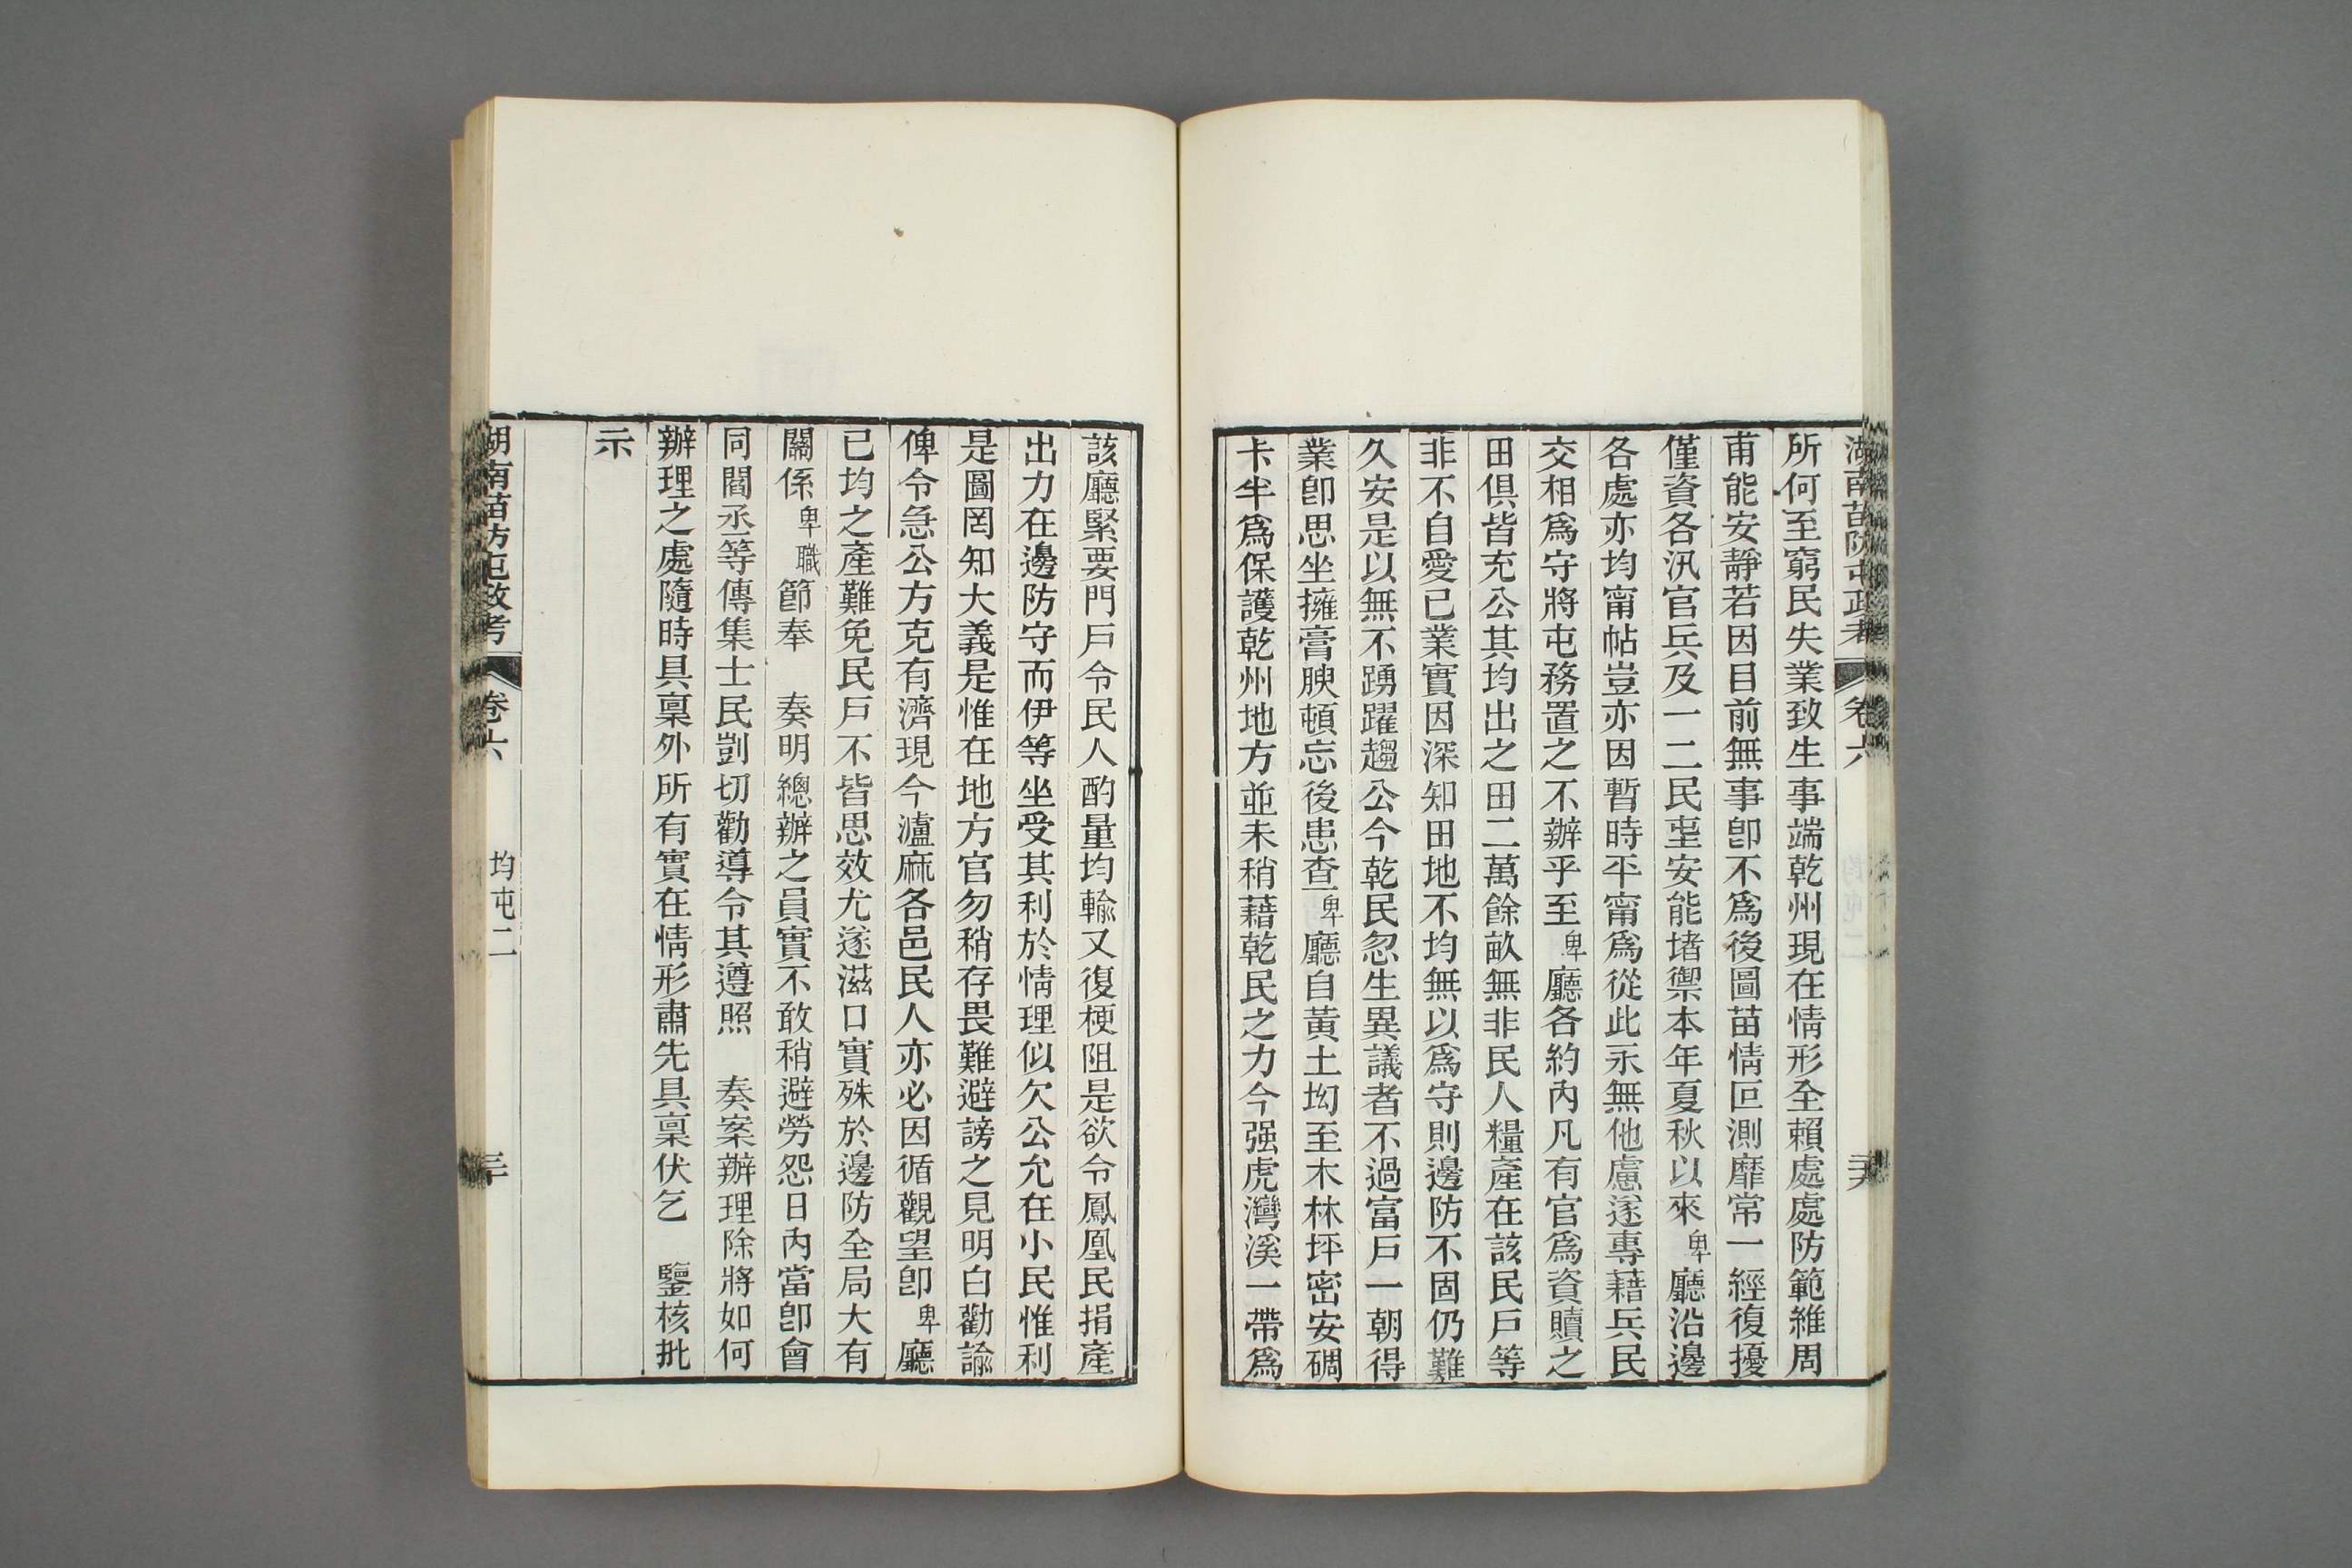 湖南苗防屯政考 卷六
所何至窮民失業致生事端乾州現在情形全賴處處防範維周
甫能安靜若因目前無事卽不爲後圖苗情叵測靡常一經復擾
僅資各汛官兵及一二民堡安能堵禦本年夏秋以來卑廳沿邊
各處亦均甯帖豈亦因暫時平甯爲從此永無他慮遂專藉兵民
交相爲守將屯務置之不辦乎至卑廳各約內凡有官爲資贖之
田俱皆充公其均出之田二萬餘畝無非民人糧產在該民戶等
非不自愛已業實因深知田地不均無以爲守則邊防不固仍難
久安是以無不踴躍趨公今乾民忽生異議者不過富戶一朝得
業卽思坐擁膏腴頓忘後患查卑廳自黃土坳至木林坪密安碉
卡半爲保護乾州地方並未稍藉乾民之力今强虎灣溪一帶爲
該廳緊要門戶令民人酌量均輸又復梗阻是欲令鳳凰民捐產
出力在邊防守而伊等坐受其利於情理似欠公允在小民惟利
是圖罔知大義是惟在地方官勿稍存畏難避謗之見明白勸諭
俾令急公方克有濟現今瀘麻各邑民人亦必因循觀望卽卑廳
已均之產難免民戶不皆思效尤遂滋口實殊於邊防全局大有
關係卑職節奉　奏明總辦之員實不敢稍避勞怨日內當卽會
同閻丞等傳集士民剴切勸導令其遵照　奏案辦理除將如何
辦理之處隨時具稟外所有實在情形肅先具稟伏乞　鑒核批
示
湖南苗防屯政考 卷六 均屯二 三十